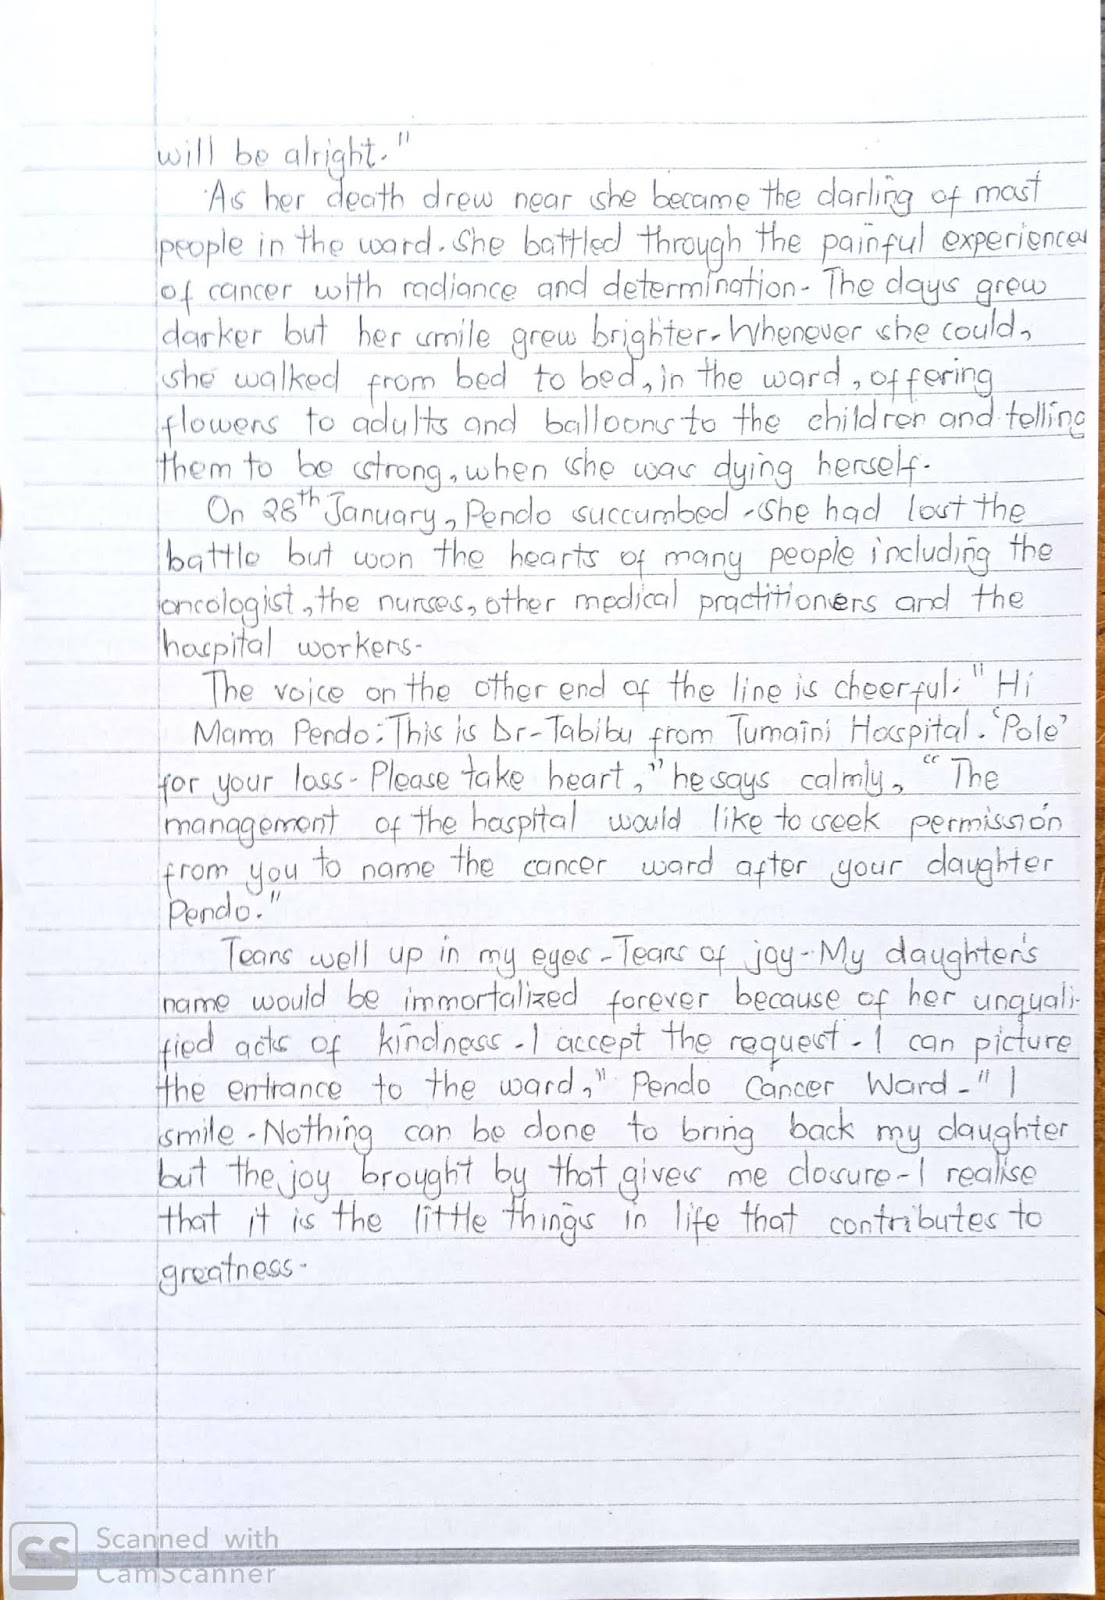 will be alright."
As her death drew near she became the darling of most
people in the ward. She battled through the painful experiences
of cancer with radiance and determination. The days grew
darker but her smile grew brighter. Whenever she could,
she walked from bed to bed, in the ward, offering
flowers to adults and balloons to the children and telling
them to be strong, when she was dying herself.
On 28th January, Pendo succumbed. She had lost the
battle but won the hearts of many people including the
oncologist, the nurses, other medical practitioners and the
hospital workers.
The voice on the other end of the line is cheerful. "Hi
Mama Pendo: This is Dr. Tabibu from Tumaini Hospital. 'Pole'
for your loss. Please take heart," he says calmly, "The
management of the hospital would like to seek permission
from you to name the cancer ward after your daughter
Pendo."
Tears well up in my eyes. Tears of joy. My daughter's
name would be immortalized forever because of her unquali-
fied acts of kindness. I accept the request. I can picture
the entrance to the ward, "Pendo Cancer Ward." I
smile. Nothing can be done to bring back my daughter
but the joy brought by that gives me closure. I realise
that it is the little things in life that contributes to
greatness.
CS Scanned with
CamScanner